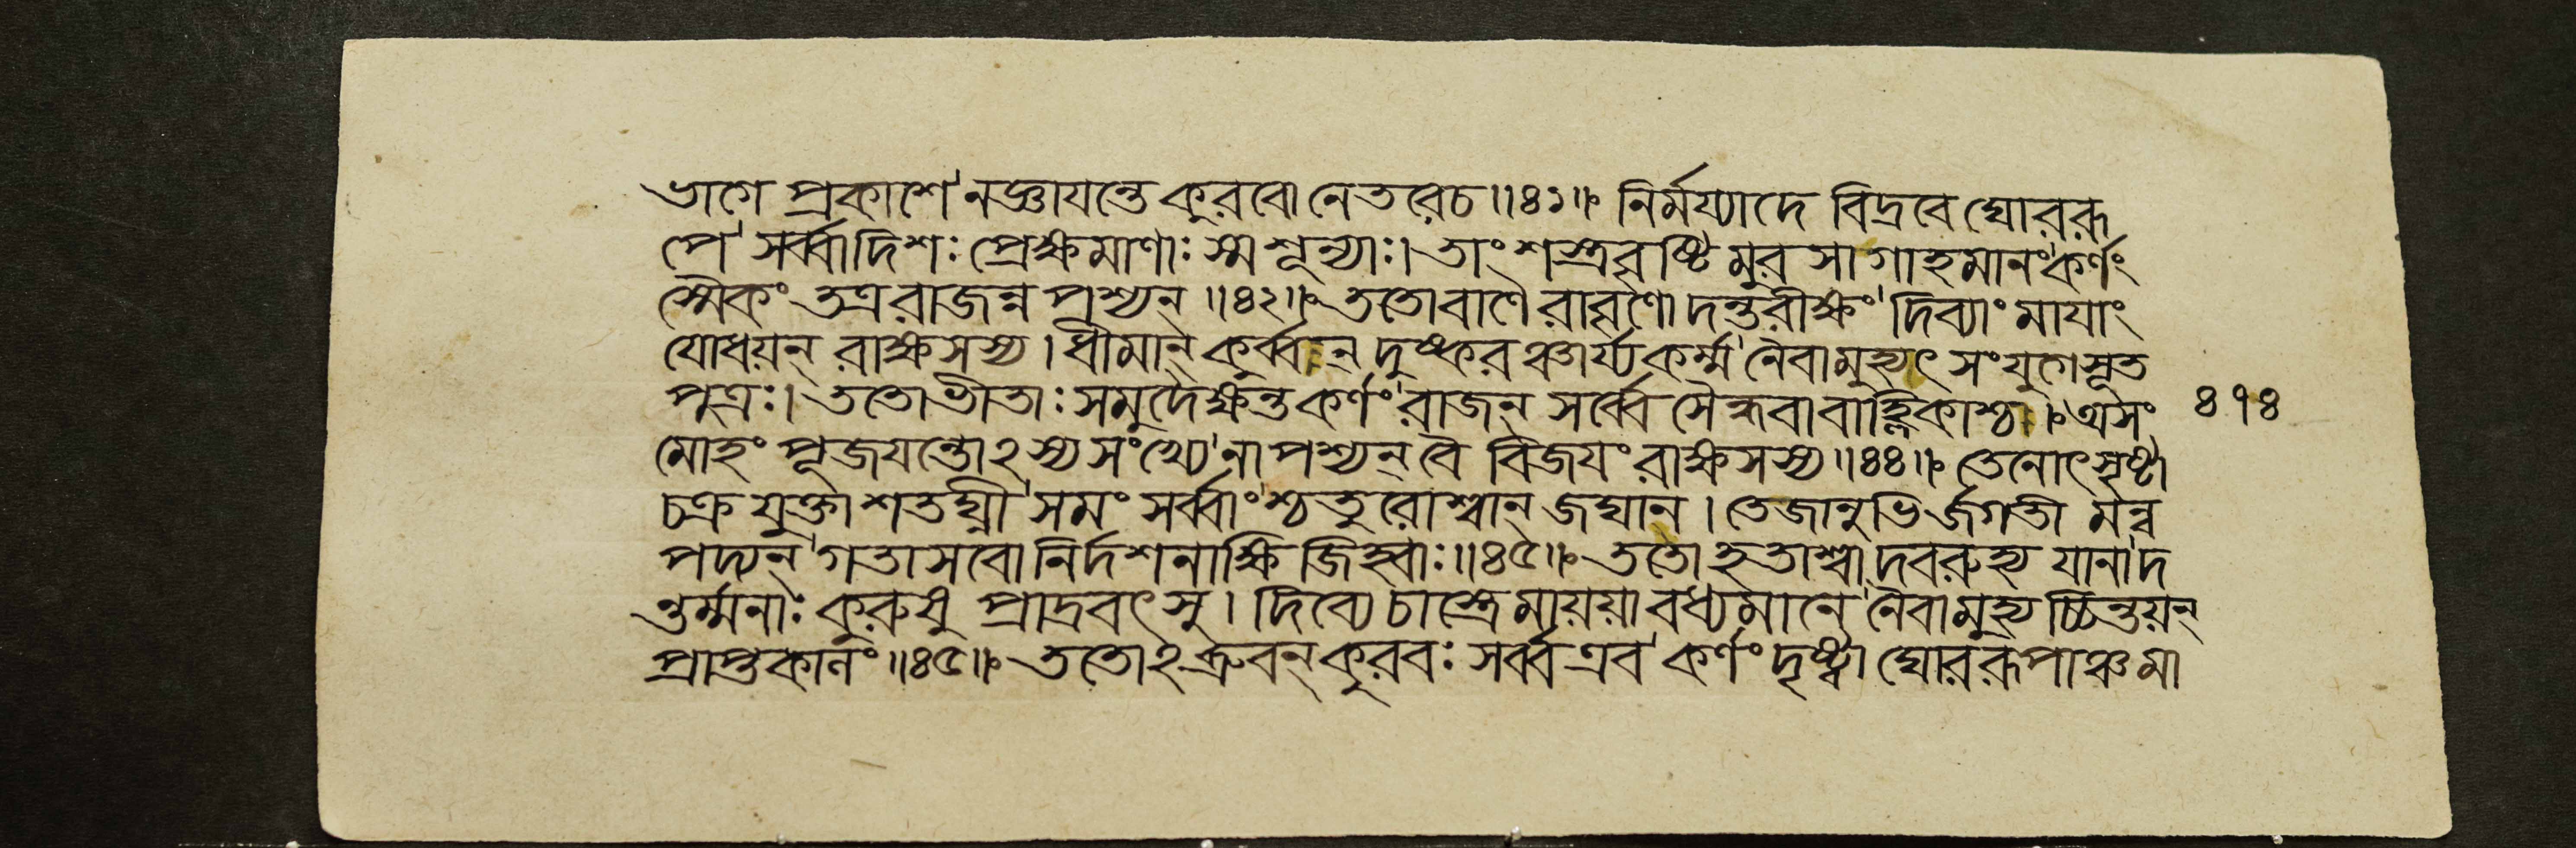 ভাগে প্রকাশে নজ্ঞাযন্তে কুরবো নেতরেচ॥৪১॥ নির্মর্য্যাদে বিদ্রবে ঘোররূ
পে সর্ব্বাদিশঃ প্রেক্ষমাণাঃ স্মশূন্যাঃ। তাং শস্ত্রবৃষ্টিমুরসাগাহমানং কর্ণং
স্মৈকং তত্র রাজন্ন পশ্যন্॥৪২॥ ততোবাণৈরাবৃণোদন্তরীক্ষং দিব্যাং মাযাং
যোধয়ন্ রাক্ষসস্য। ধীমান্ কুর্ব্বান্ দুষ্করঞ্চার্য্যকর্ম্ম নৈবামুহ্যৎ সংযুগেসূত
পুত্রঃ। ততোভীতাঃ সমুদৈক্ষন্ত কর্ণং রাজন্ সর্ব্বে সৈন্ধবাবাহ্লিকাশ্চ। অসং
মোহং পূজযন্তোঽস্য সংখ্যে নাপশ্যন্ বৈ বিজযং রাক্ষসস্য॥৪৪॥ তেনোৎসৃষ্টা
চক্রযুক্তা শতঘ্নী সমং সর্ব্বাংশ্চতুরোশ্বান্ জঘান। তেজানুভির্জগতী মন্ব
পদ্যন্ গতাসবো নির্দশনাক্ষিজিহ্বাঃ॥৪৫॥ ততোহতাশ্বাদবরুহ্য যানাদ
ন্তর্ম্মনাঃ কুরুষু প্রাদ্রবৎসু। দিব্যে চাস্ত্রে মায়য়া বধ্যমানে নৈবামুহ্যচ্চিন্তয়ন্
প্রাপ্তকালং॥৪৫॥ ততোঽব্রুবন্ কুরবঃ সর্ব্বএব কর্ণং দৃষ্ট্বা ঘোররূপাঞ্চমা
৪১৪